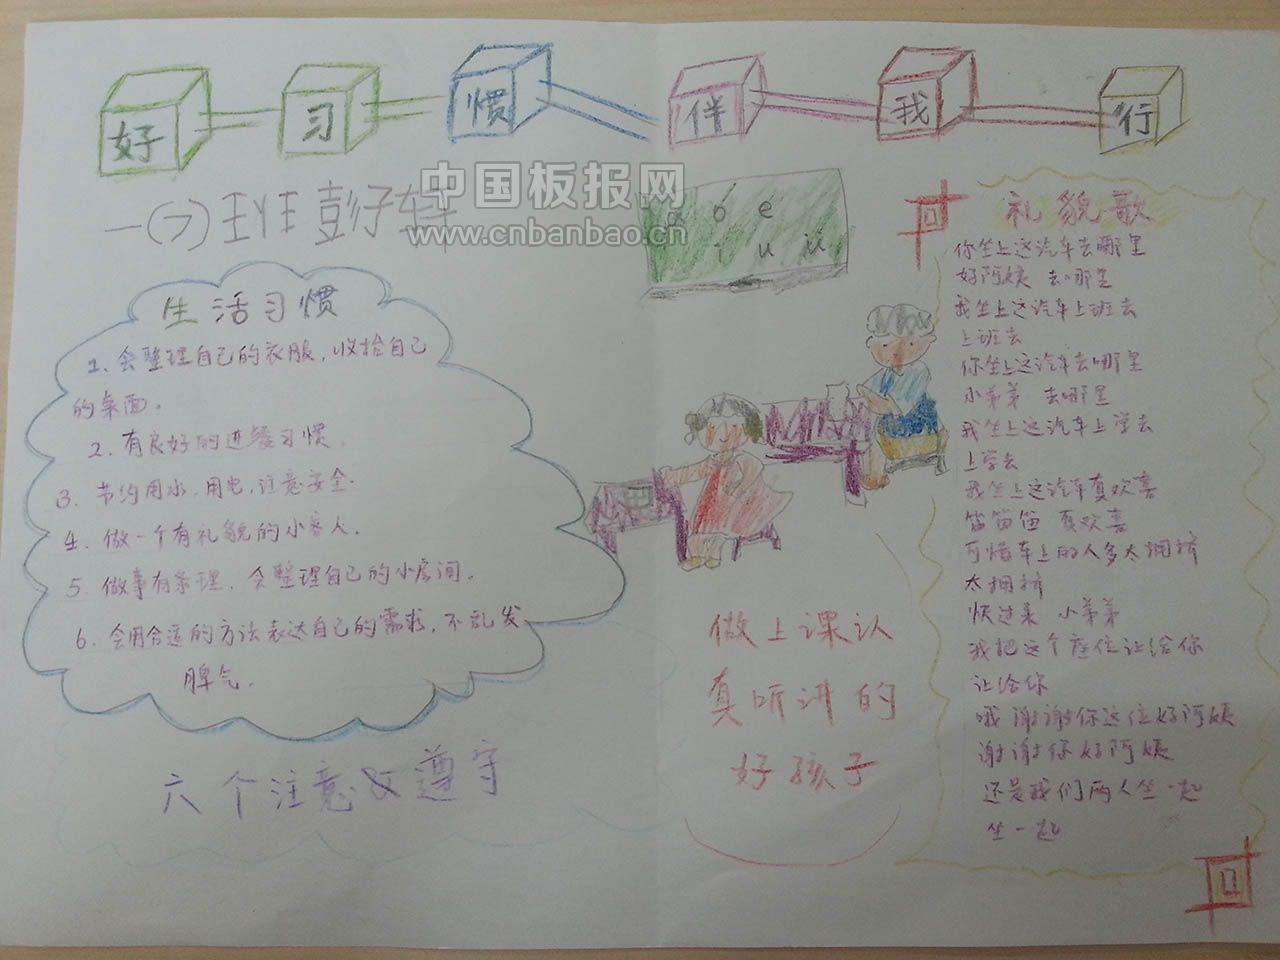 好习惯伴我行
中国板报网
www.cnbanbao.cn
一(7)班 彭子
a o e
i u ü
生活习惯
1、会整理自己的衣服,收拾自己
的桌面。
2、有良好的进餐习惯.
3、节约用水、用电,注意安全.
4、做一个有礼貌的小客人.
5、做事有条理,会整理自己的小房间.
6、会用合适的方法表达自己的需求,不乱发
脾气.
六个注意&遵守
做上课认
真听讲的
好孩子
礼貌歌
你坐上这汽车去哪里
好阿姨 去哪里
我坐上这汽车上班去
上班去
你坐上这汽车去哪里
小弟弟 去哪里
我坐上这汽车上学去
上学去
我坐上这汽车真欢喜
笛笛笛 真欢喜
可惜车上的人多太拥挤
太拥挤
快过来 小弟弟
我把这个座位让给你
让给你
哦谢谢你这位好阿姨
谢谢你好阿姨
还是我们两人坐一起
坐一起